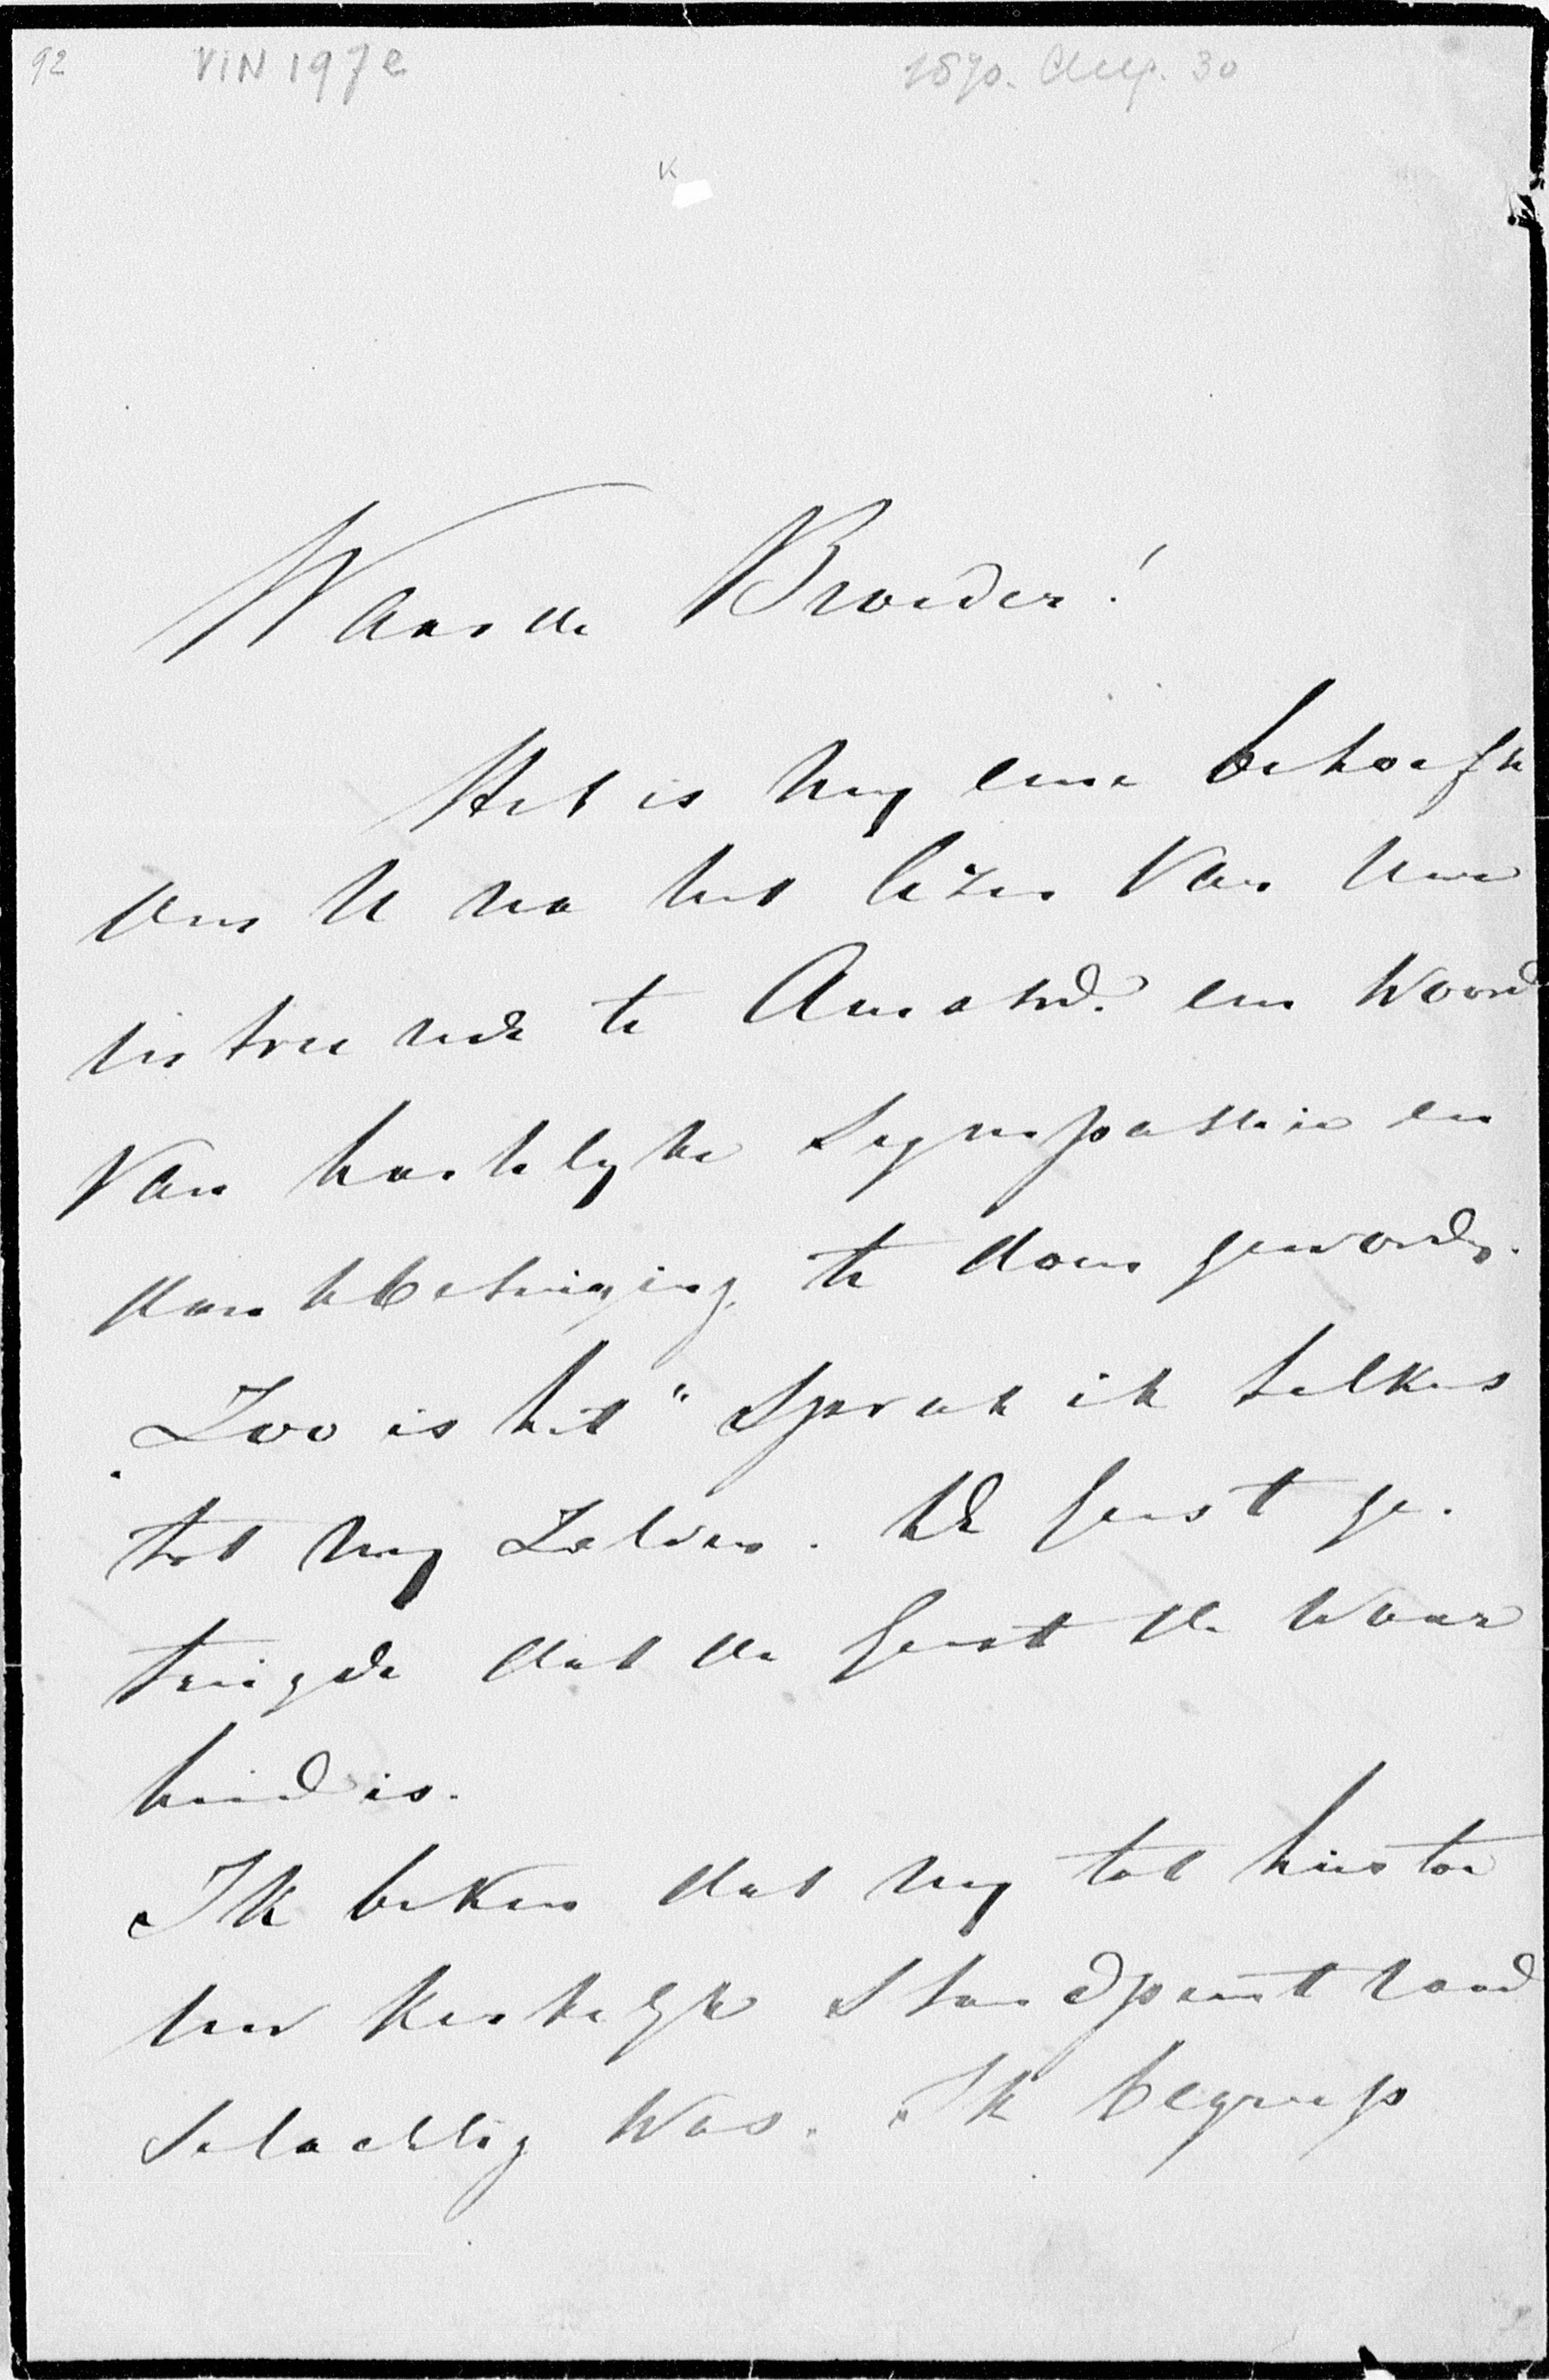 92 VIN 197e 1870. Aug. 30
Waarde Broeder!
Het is my eene behoefte
om U na het lezen van Uwe
intreerede te Amsterd. een woord
van hartelyke sympathie en
dankbetuiging te doen geworden.
„Zoo is het" sprak ik telkens
tot my zelven. De Geest ge-
tuigde dat de Geest de waar
heid is.
Ik beken dat my tot hiertoe
uw kerkelyk standpunt raad
selachtig was. Ik begreep